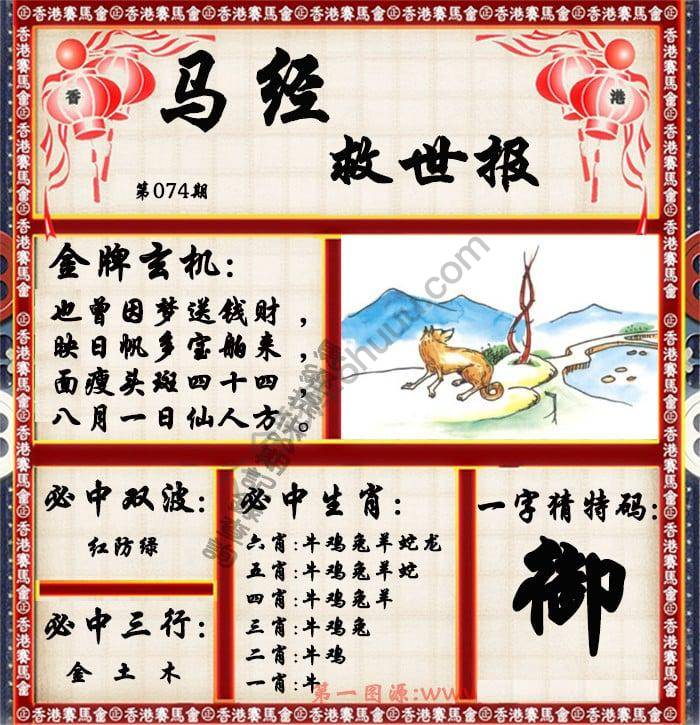 香港賽馬會
香
港
马经
救世报
第074期
金牌玄机:
也曾因梦送钱财，
映日帆多宝舶来，
面瘦头斑四十四，
八月一日仙人方。
必中双波:
红防绿
必中三行:
金土木
必中生肖:
六肖:牛鸡兔羊蛇龙
五肖:牛鸡兔羊蛇
四肖:牛鸡兔羊
三肖:牛鸡兔
二肖:牛鸡
一肖:牛
一字猜特码:
御
第一图源:www